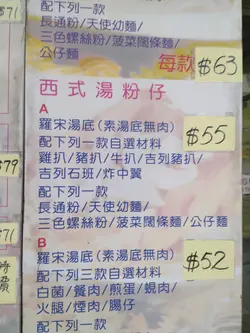 $71
配下列一款
長通粉/天使幼麵/
三色螺絲粉/菠菜闊條麵/
公仔麵
每款 $63
西式湯粉仔
A
羅宋湯底(素湯底無肉) $55
配下列一款自選材料
雞扒/豬扒/牛扒/吉列豬扒/
吉列石班/炸中翼
$79
配下列一款
長通粉/天使幼麵/
三色螺絲粉/菠菜闊條麵/公仔麵
$71
B
羅宋湯底(素湯底無肉) $52
配下列三款自選材料
白菌/餐肉/煎蛋/蜆肉/
火腿/煙肉/腸仔
配下列一款